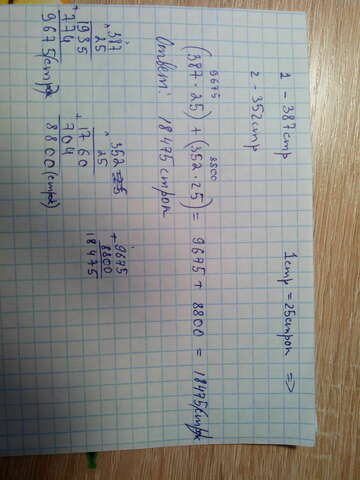 1 - 387стр
2 - 352стр
1стр = 25строк =>
9675 8800
(387·25) + (352·25) = 9675 + 8800 = 18475(строк
Ответ: 18475 строк
×387
25
+1935
774
9675(строк
×352
25
+1760
704
8800(строк)
+9675
8800
18475